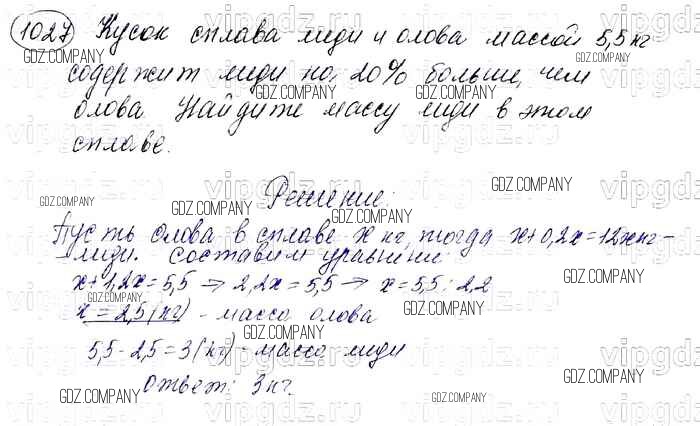 1027 Кусок сплава меди и олова массой 5,5 кг
содержит меди на 20% больше, чем
олова. Найдите массу меди в этом
сплаве.
Решение:
Пусть олова в сплаве x кг, тогда x+0,2x=12x кг –
меди. Составим уравнение:
x+1,2x=5,5 → 2,2x=5,5 → x=5,5:2,2
x=2,5(кг) - масса олова
5,5-2,5=3(кг) - масса меди
Ответ: 3 кг.